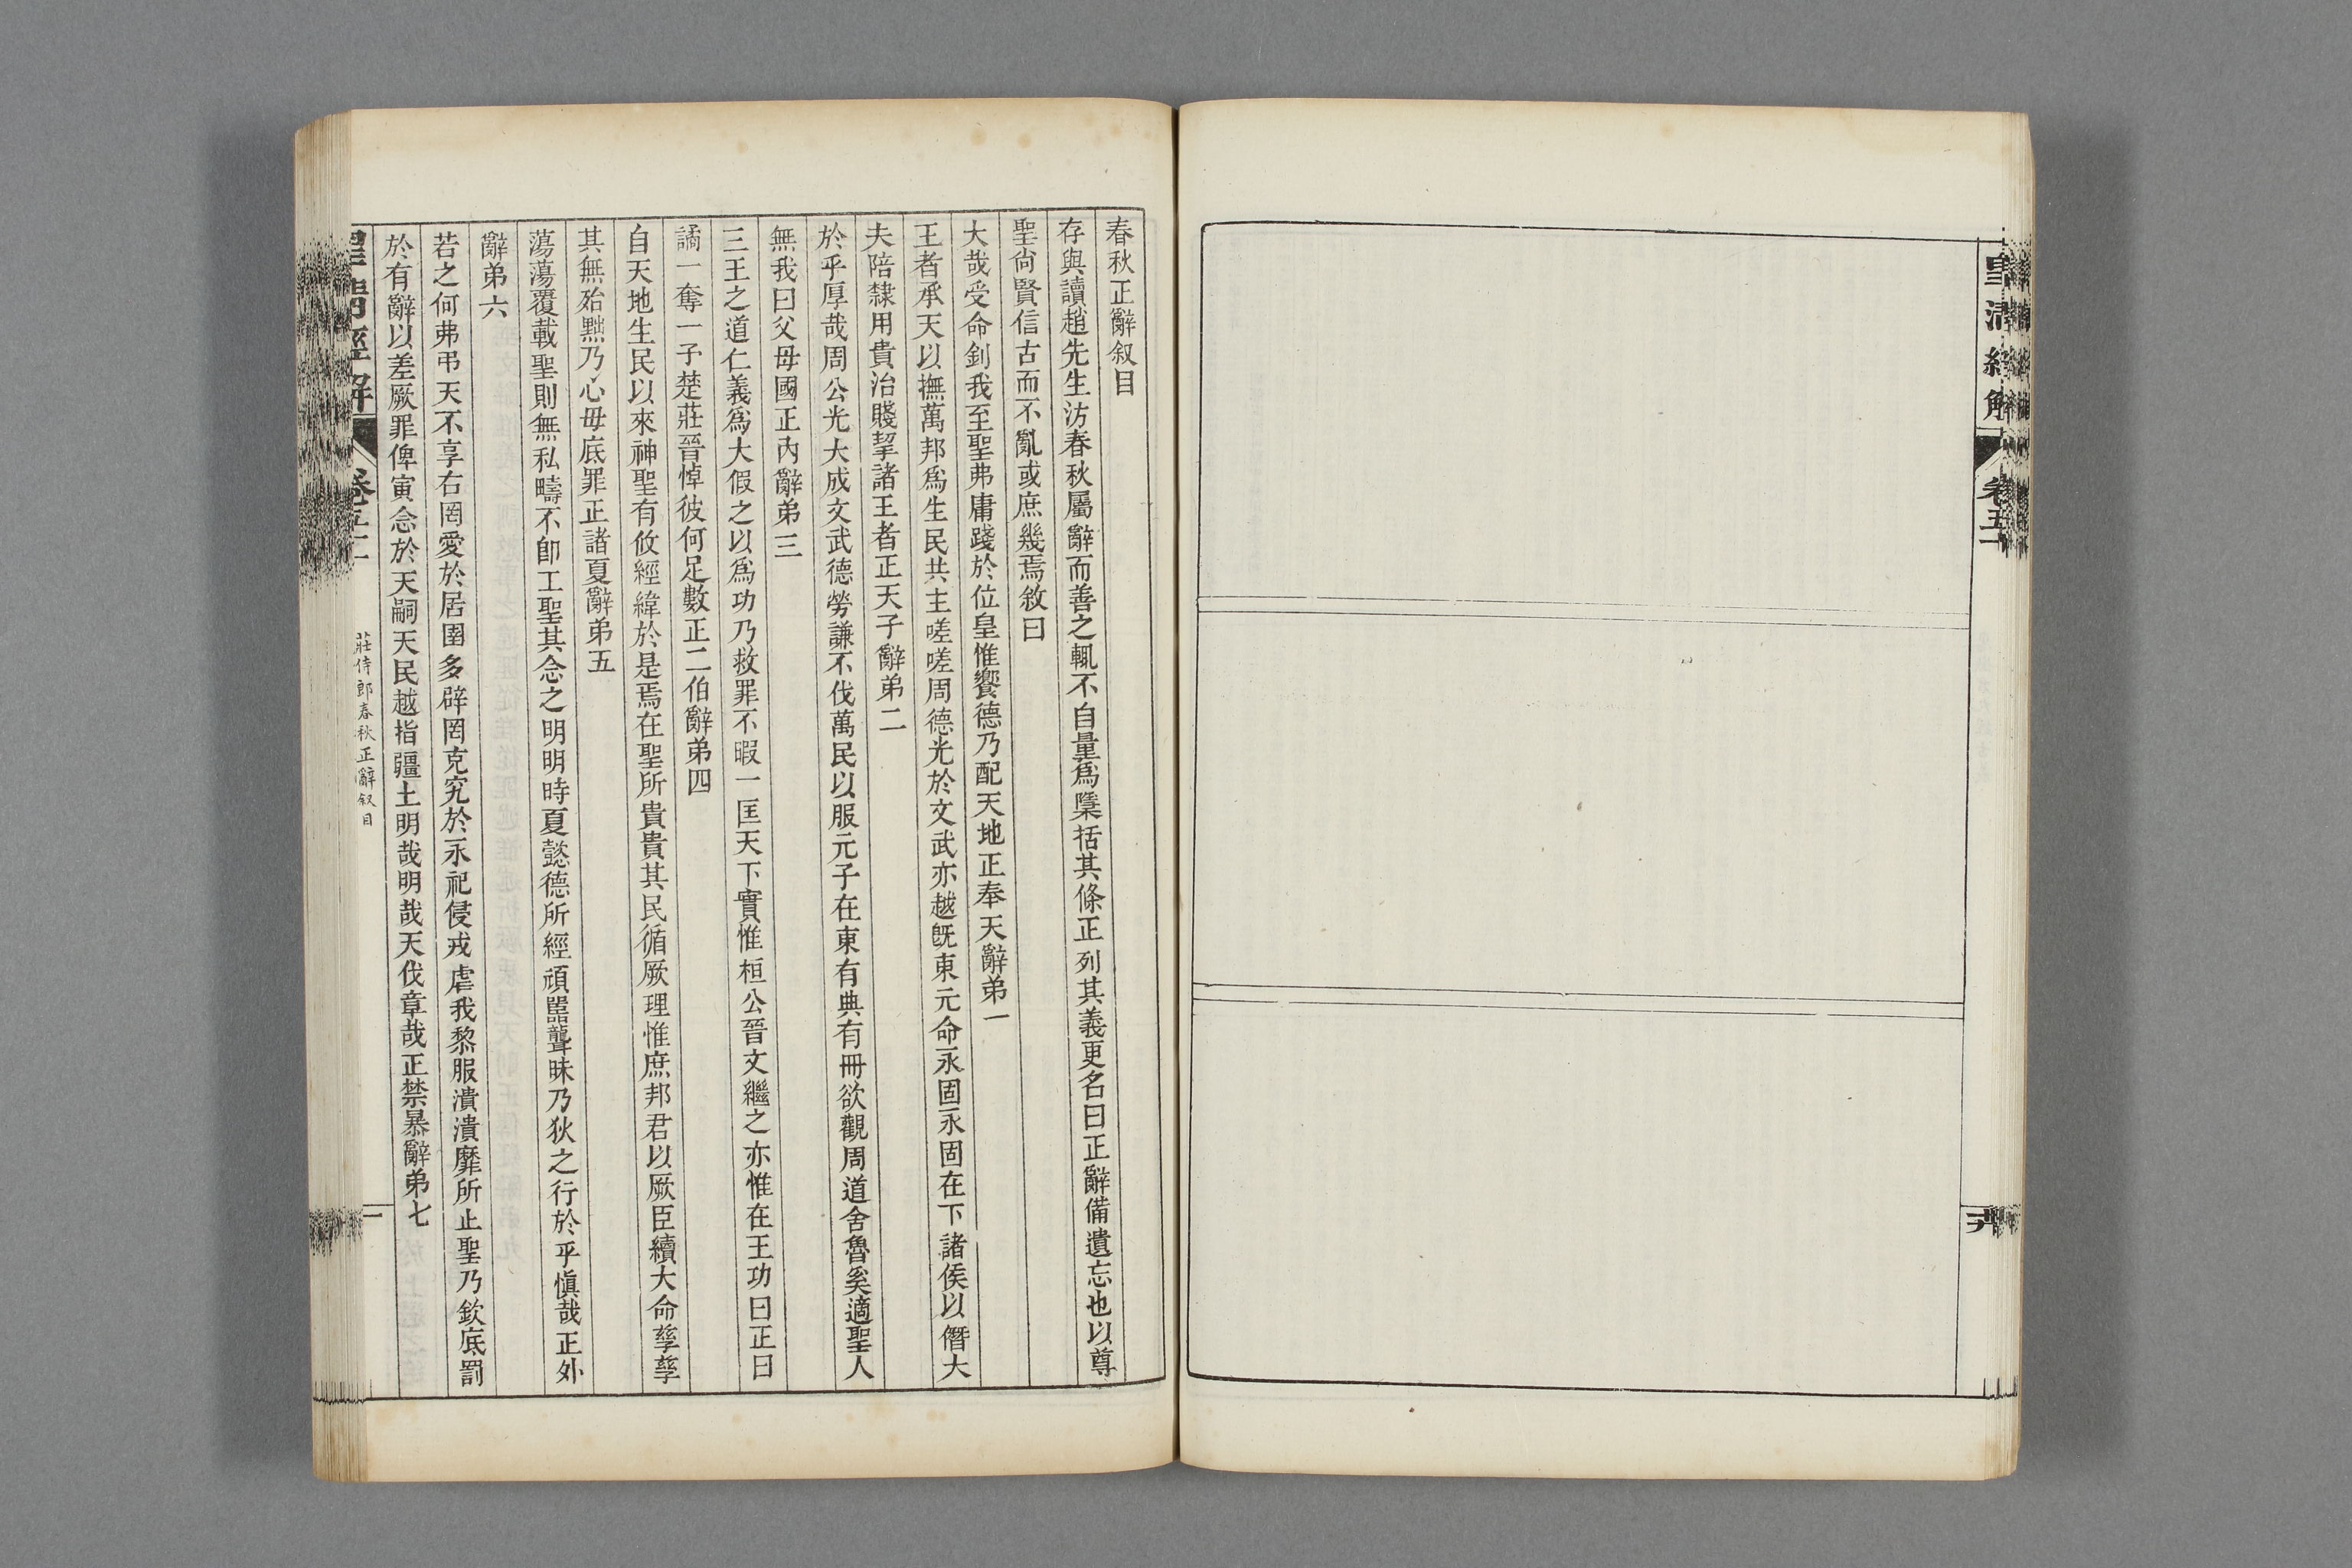 皇清經解
卷五
春秋正辭叙目
存與讀趙先生汸春秋屬辭而善之輒不自量爲檃括其條正列其義更名曰正辭備遺忘也以尊
聖尙賢信古而不亂或庶幾焉敘曰
大哉受命釗我至聖弗庸踐於位皇惟饗德乃配天地正奉天辭弟一
王者承天以撫萬邦爲生民共主嗟嗟周德光於文武亦越旣東元命永固永固在下諸侯以僭大
夫陪隸用貴治賤挈諸王者正天子辭弟二
於乎厚哉周公光大成文武德勞謙不伐萬民以服元子在東有典有冊欲觀周道舍魯奚適聖人
無我曰父母國正內辭弟三
三王之道仁義爲大假之以爲功乃救罪不暇一匡天下實惟桓公晉文繼之亦惟在王功曰正曰
譎一奪一予楚莊晉悼彼何足數正二伯辭弟四
自天地生民以來神聖有攸經緯於是焉在聖所貴貴其民循厥理惟庶邦君以厥臣續大命孳孳
其無殆黜乃心毋底罪正諸夏辭弟五
蕩蕩覆載聖則無私疇不卽工聖其念之明明時夏懿德所經頑嚚聾昧乃狄之行於乎愼哉正外
辭弟六
若之何弗弔天不享右罔愛於居圉多辟罔克究於永祀侵戎虐我黎服潰潰靡所止聖乃欽底罰
於有辭以差厥罪俾寅念於天嗣天民越指疆土明哉明哉天伐章哉正禁暴辭弟七
皇清經解
卷
莊侍郎春秋正辭叙目
一